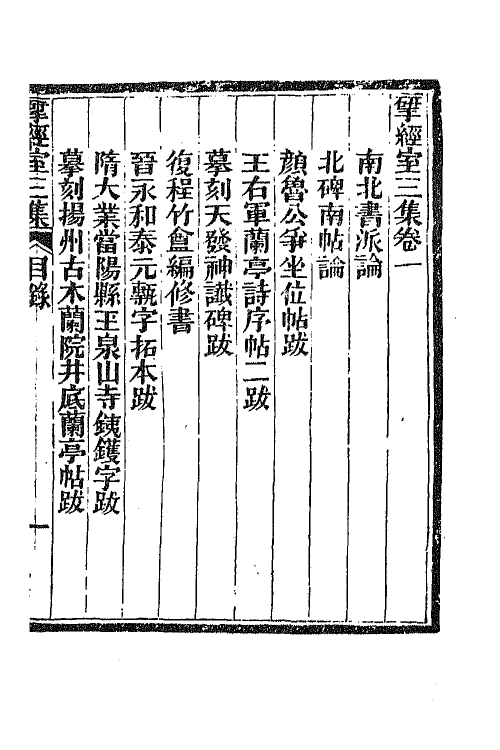 揅經室三集卷一
南北書派論
北碑南帖論
顏魯公爭坐位帖跋
王右軍蘭亭詩序帖二跋
摹刻天發神讖碑跋
復程竹盦編修書
晉永和泰元甎字拓本跋
隋大業當陽縣玉泉山寺鐵鑊字跋
摹刻揚州古木蘭院井底蘭亭帖跋
揅經室三集 目錄 一